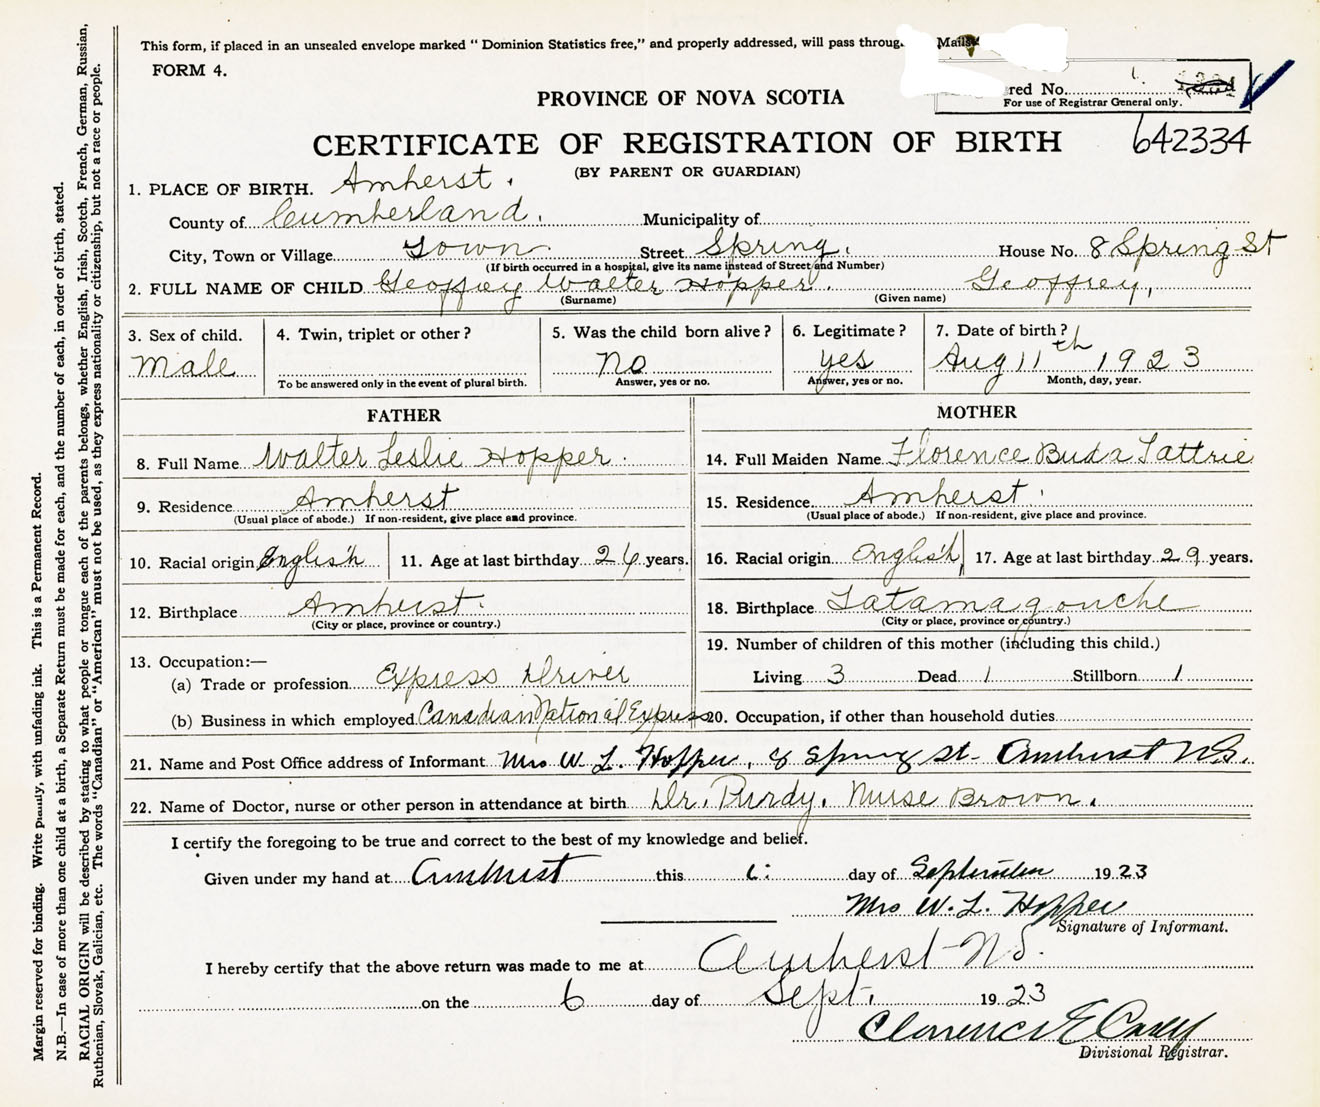 This form, if placed in an unsealed envelope marked " Dominion Statistics free," and properly addressed, will pass throug Mails
FORM 4.
red No.
For use of Registrar General only.
PROVINCE OF NOVA SCOTIA
CERTIFICATE OF REGISTRATION OF BIRTH 642334
(BY PARENT OR GUARDIAN)
1. PLACE OF BIRTH. Amherst.
County of Cumberland. Municipality of
City, Town or Village Town Street Spring. House No. 8 Spring St
(If birth occurred in a hospital, give its name instead of Street and Number)
2. FULL NAME OF CHILD Geoffrey Walter Hopper. Geoffrey,
(Surname) (Given name)
3. Sex of child. 4. Twin, triplet or other? 5. Was the child born alive? 6. Legitimate? 7. Date of birth?
Male No yes Aug 11th 1923
To be answered only in the event of plural birth. Answer, yes or no. Answer, yes or no. Month, day, year.
FATHER MOTHER
8. Full Name Walter Leslie Hopper. 14. Full Maiden Name Florence Buda Tattrie
9. Residence Amherst 15. Residence Amherst.
(Usual place of abode.) If non-resident, give place and province. (Usual place of abode.) If non-resident, give place and province.
10. Racial origin English 11. Age at last birthday 26 years. 16. Racial origin English 17. Age at last birthday 29 years.
12. Birthplace Amherst. 18. Birthplace Tatamagouche
(City or place, province or country.) (City or place, province or country.)
19. Number of children of this mother (including this child.)
13. Occupation:—
(a) Trade or profession Express Driver Living 3 Dead 1 Stillborn 1
(b) Business in which employed Canadian National Express 20. Occupation, if other than household duties
21. Name and Post Office address of Informant Mrs W. L. Hopper, 8 Spring St. Amherst N.S.
22. Name of Doctor, nurse or other person in attendance at birth Dr. Purdy. Nurse Brown.
I certify the foregoing to be true and correct to the best of my knowledge and belief.
Given under my hand at Amherst this 6. day of September 1923
Mrs W. L. Hopper
Signature of Informant.
I hereby certify that the above return was made to me at Amherst N.S.
on the 6 day of Sept. 1923
Clarence E Casey
Divisional Registrar.
Margin reserved for binding. Write plainly, with unfading ink. This is a Permanent Record.
N.B.—In case of more than one child at a birth, a Separate Return must be made for each, and the number of each, in order of birth, stated.
RACIAL ORIGIN will be described by stating to what people or tongue each of the parents belongs, whether English, Irish, Scotch, French, German, Russian,
Ruthenian, Slovak, Galician, etc. The words "Canadian" or "American" must not be used, as they express nationality or citizenship, but not a race or people.